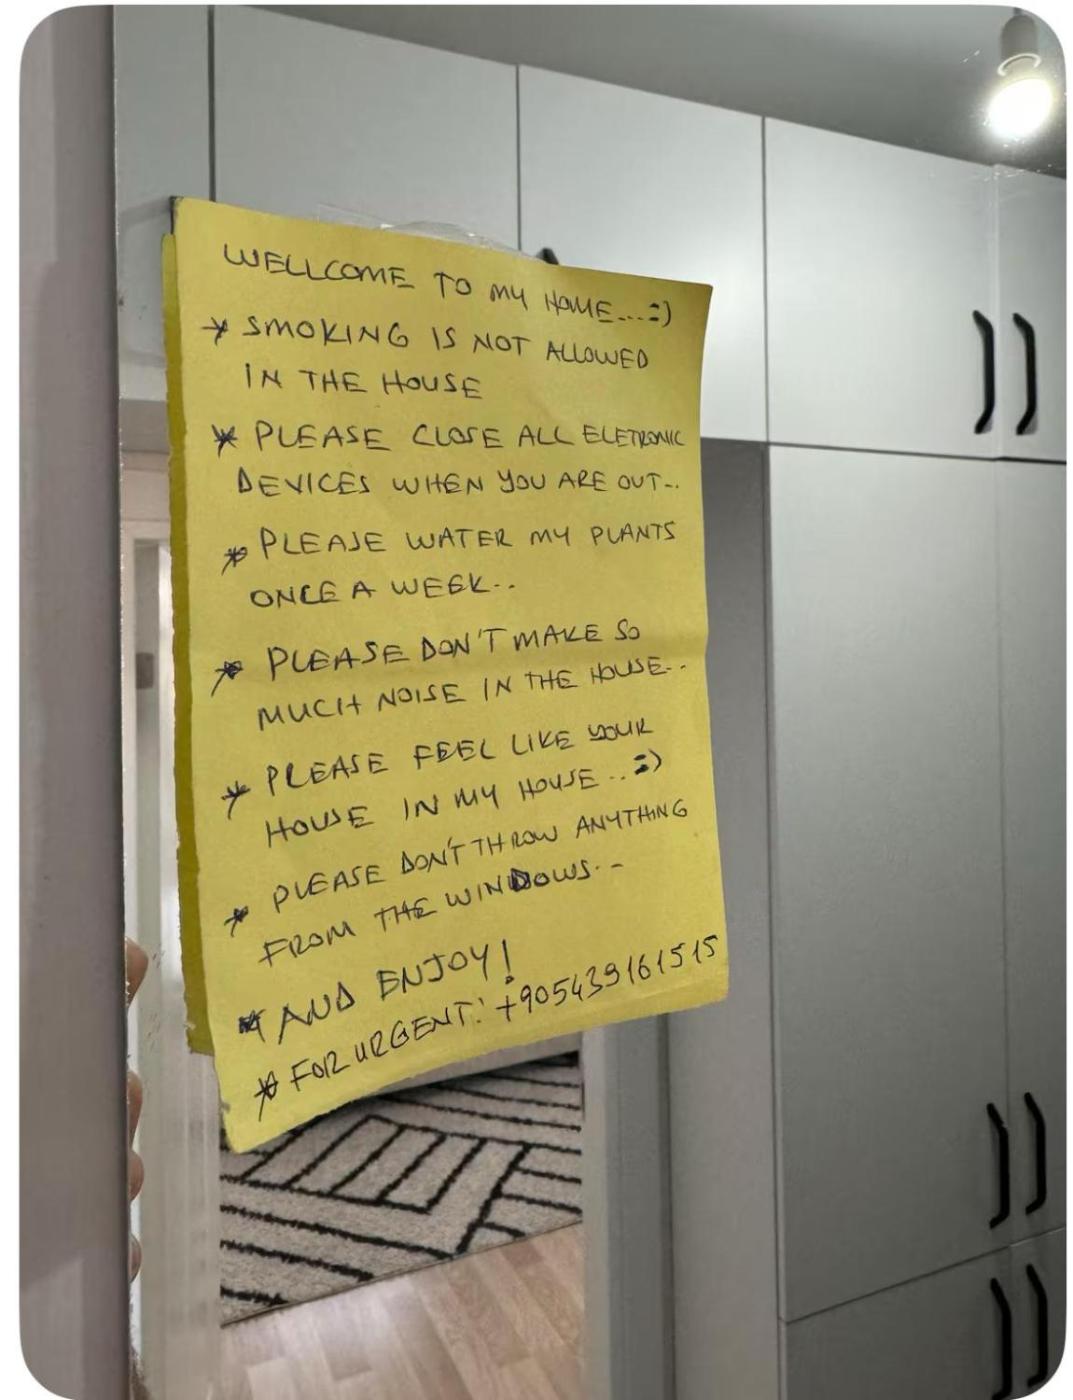 WELLCOME TO MY HOME...:)
* SMOKING IS NOT ALLOWED
IN THE HOUSE
* PLEASE CLOSE ALL ELETRONIC
DEVICES WHEN YOU ARE OUT..
* PLEASE WATER MY PLANTS
ONCE A WEEK..
* PLEASE DON'T MAKE SO
MUCH NOISE IN THE HOUSE..
* PLEASE FEEL LIKE YOUR
HOUSE IN MY HOUSE..:)
* PLEASE DON'T THROW ANYTHING
FROM THE WINDOWS..
* AND ENJOY!
* FOR URGENT: +905439161515